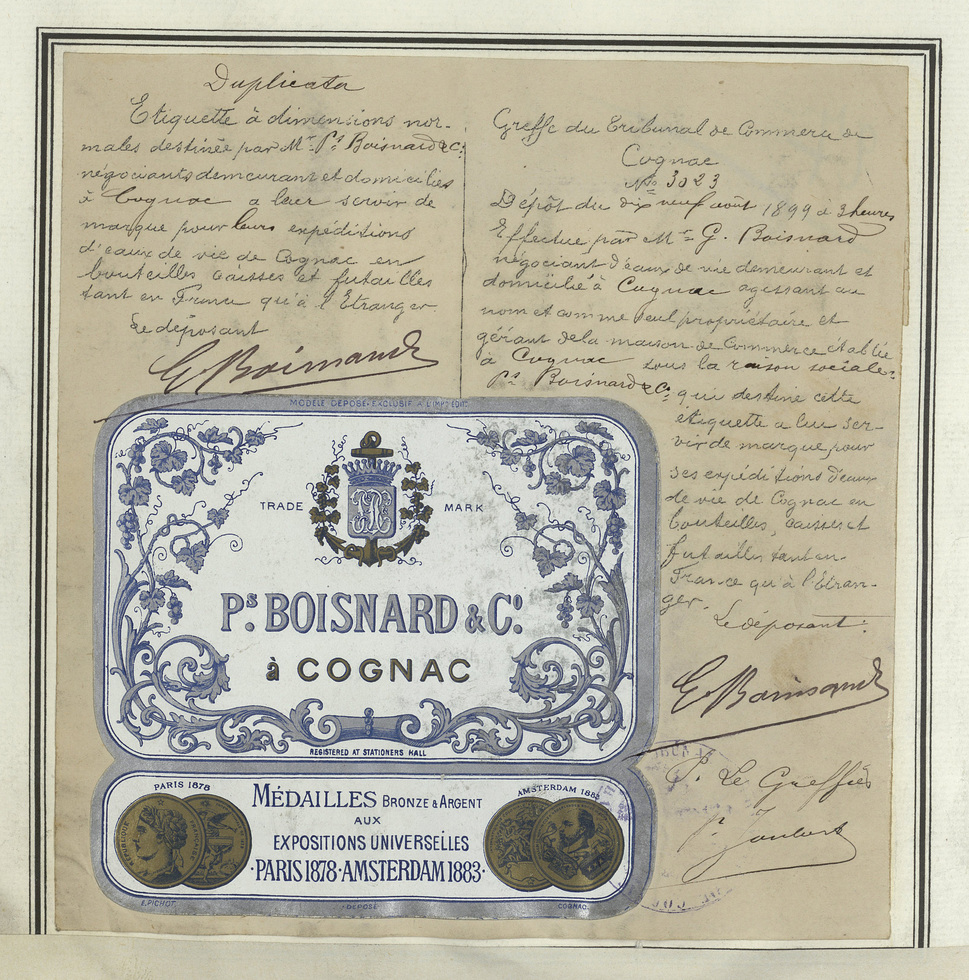 Duplicata
Etiquette à dimensions nor-
males destinée par Mr Ps Boisnard & Cie
négociants demeurant et domiciliés
à Cognac a leur servir de
marque pour leurs expéditions
d'eaux de vie de Cognac en
bouteilles caisses et futailles
tant en France qu'à l'Etranger
Le déposant
G. Boisnard
Greffe du Tribunal de Commerce de
Cognac
No 3023
Dépôt du dix neuf août 1899 à 3 heures
Effectué par Mr G. Boisnard
négociant d'eaux de vie demeurant et
domicilié à Cognac agissant au
nom et comme seul propriétaire et
gérant de la maison de Commerce établie
à Cognac sous la raison sociale
Ps Boisnard & Cie qui destine cette
etiquette a lui ser-
vir de marque pour
ses expéditions d'eaux
de vie de Cognac en
bouteilles, caisses et
futailles tant en
France qu'à l'Etran-
ger.
Le déposant.
G. Boisnard
P. Le Greffier
MODÈLE DÉPOSÉ-EXCLUSIF A L'IMP. ÉDIT.
TRADE MARK
Ps. BOISNARD & Co.
à COGNAC
REGISTERED AT STATIONERS HALL
PARIS 1878
MÉDAILLES BRONZE & ARGENT
AUX
EXPOSITIONS UNIVERSELLES
·PARIS 1878·AMSTERDAM 1883·
AMSTERDAM 1883
E. PICHOT.
DÉPOSÉ
COGNAC